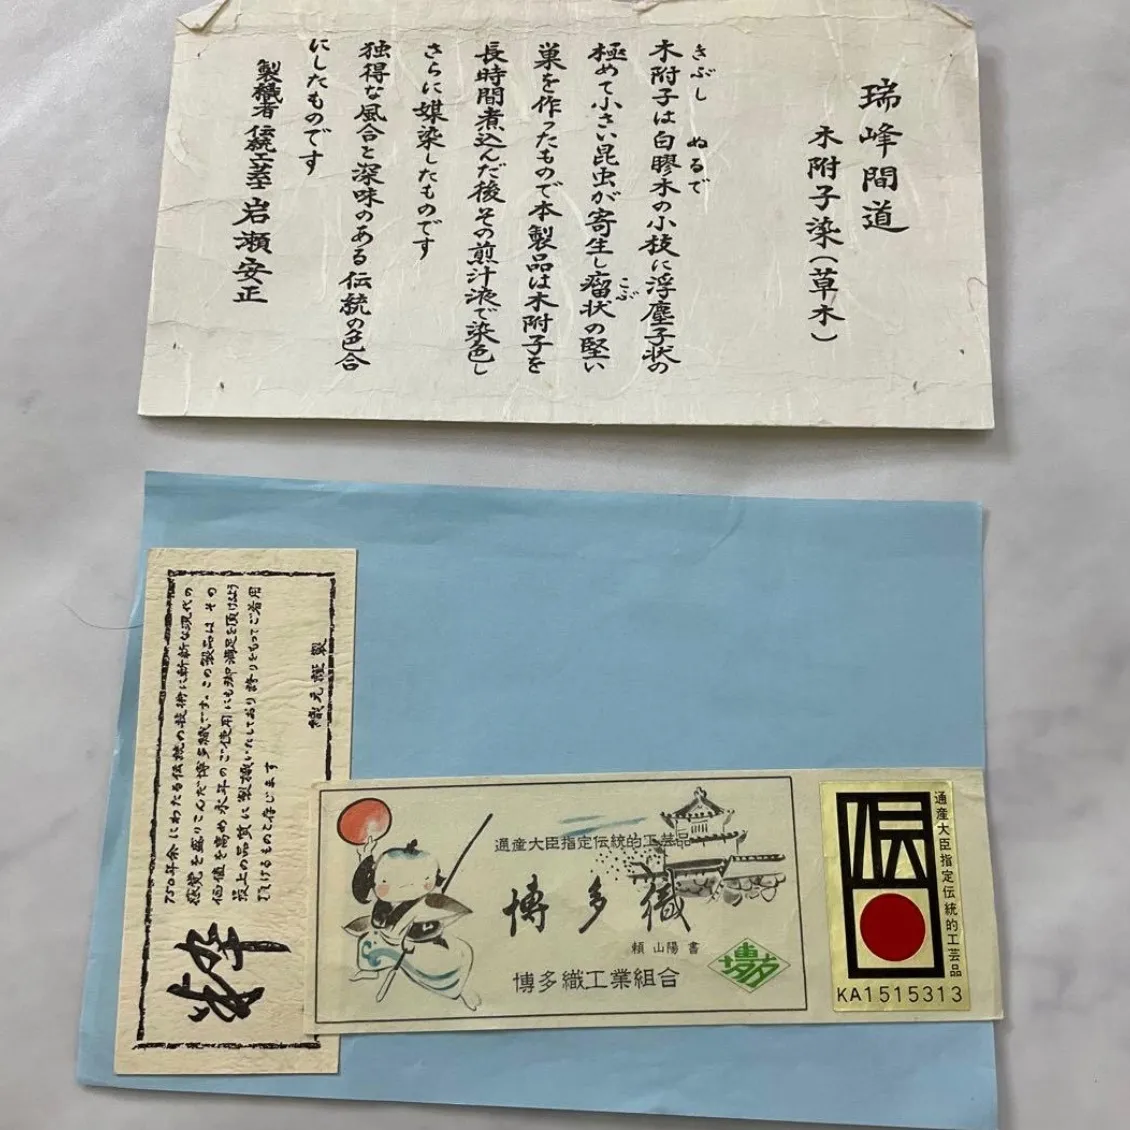 瑞峰間道
木附子染(草木)
きぶし ぬるで
木附子は白膠木の小枝に浮塵子状の
極めて小さい昆虫が寄生し瘤状の堅い
こぶ
巣を作ったもので本製品は木附子を
長時間煮込んだ後その煎汁液で染色し
さらに媒染したものです
独得な風合と深味のある伝統の色合
にしたものです
製織者 伝統工芸士 岩瀬安正
750年余にわたる伝統の技術に斬新な現代の
感覚を盛りこんだ博多織です。この製品は その
価値を高め永年のご使用にも御満足を頂けるよう
最上の品質に製織いたしており 誇りをもってご着用
頂けるものと存じます
織元謹製
通産大臣指定伝統的工芸品
博多織
頼山陽書
博多織工業組合
博多
伝
通産大臣指定伝統的工芸品
KA1515313